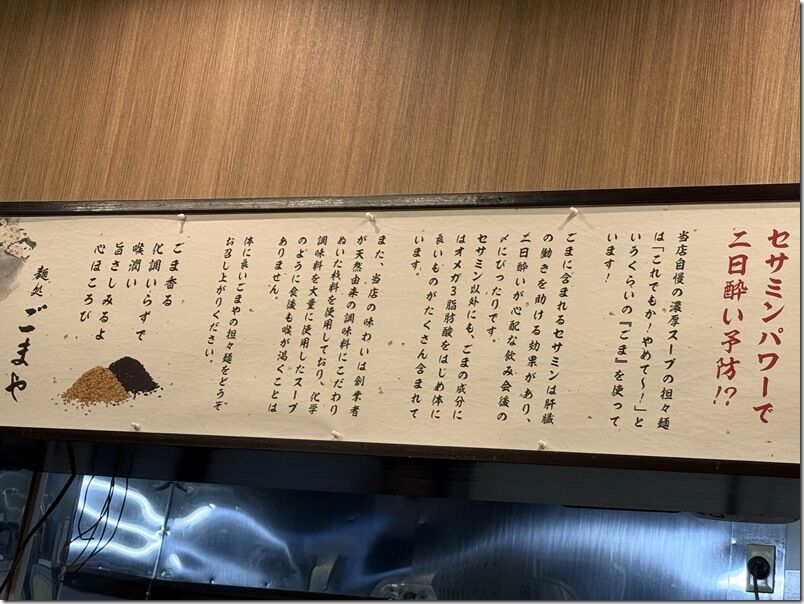 セサミンパワーで
二日酔い予防!?
当店自慢の濃厚スープの担々麺
は「これでもか!やめて〜!」と
いうくらいの『ごま』を使って
います!
ごまに含まれるセサミンは肝臓
の働きを助ける効果があり、
二日酔いが心配な飲み会後の
〆にぴったりです。
セサミン以外にも、ごまの成分に
はオメガ3脂肪酸をはじめ体に
良いものがたくさん含まれて
います。
また、当店の味わいは創業者
が天然由来の調味料にこだわり
ぬいた材料を使用しており、化学
調味料を大量に使用したスープ
のように食後も喉が渇くことは
ありません。
体に良いごまやの担々麺をどうぞ
お召し上がりください。
ごま香る
化調いらずで
喉潤い
旨さしみるよ
心ほころび
麺処 ごまや